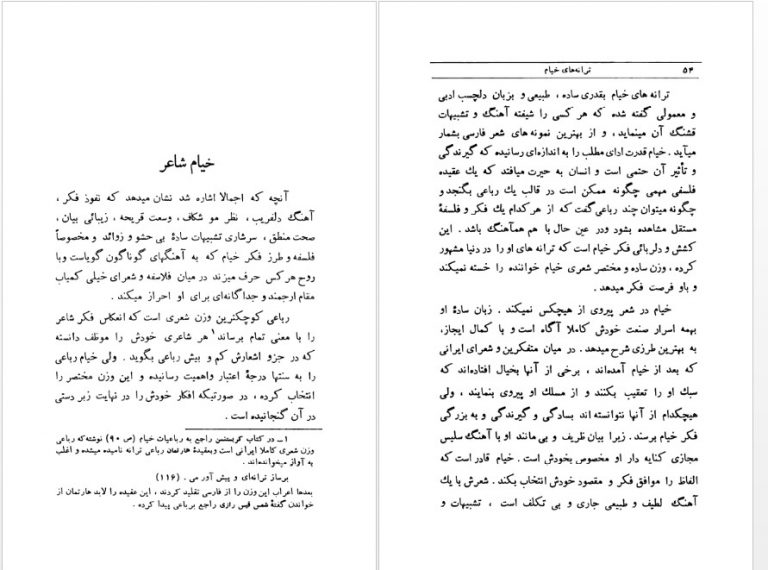 خیام شاعر
آنچه که اجمالا اشاره شد نشان میدهد که نفوذ فکر ،
آهنگ دلفریب ، نظر مو شکاف ، وسعت قریحه ، زیبائی بیان ،
صحت منطق ، سرشاری تشبیهات سادهٔ بی حشو و زوائد و مخصوصاً
فلسفه و طرز فکر خیام که به آهنگهای گوناگون گویاست و با
روح هر کس حرف میزند در میان فلاسفه و شعرای خیلی کمیاب
مقام ارجمند و جداگانه‌ای برای او احراز میکند .
رباعی کوچکترین وزن شعری است که انعکاس فکر شاعر
را با معنی تمام برساند¹ هر شاعری خودش را موظف دانسته
که در جزو اشعارش کم و بیش رباعی بگوید . ولی خیام رباعی
را به منتها درجهٔ اعتبار واهمیت رسانیده و این وزن مختصر را
انتخاب کرده ، در صورتیکه افکار خودش را در نهایت زبر دستی
در آن گنجانیده است .
۱ـ در کتاب کریستنسن راجع به رباعیات خیام (ص ۹۰) نوشته که رباعی
وزن شعری کاملا ایرانی است وبعقیدهٔ هارتمان رباعی ترانه نامیده میشده و اغلب
به آواز میخوانده‌اند .
برساز ترانه‌ای و پیش آور می . (۱۱۶)
بعدها اعراب این وزن را از فارسی تقلید کردند ، این عقیده را لابد هارتمان از
خواندن گفتهٔ شمس قیس رازی راجع برباعی پیدا کرده .
۵۴ ترانه‌های خیام
ترانه های خیام بقدری ساده ، طبیعی و بزبان دلچسب ادبی
و معمولی گفته شده که هر کسی را شیفته آهنگ و تشبیهات
قشنگ آن مینماید ، و از بهترین نمونه های شعر فارسی بشمار
میآید . خیام قدرت ادای مطلب را به اندازه‌ای رسانیده که گیرندگی
و تأثیر آن حتمی است و انسان به حیرت میافتد که یك عقیده
فلسفی مهمی چگونه ممکن است در قالب یك رباعی بگنجد و
چگونه میتوان چند رباعی گفت که از هر کدام یك فکر و فلسفهٔ
مستقل مشاهده بشود ودر عین حال با هم همآهنگ باشد . این
کشش و دلربائی فکر خیام است که ترانه های او را در دنیا مشهور
کرده ، وزن ساده و مختصر شعری خیام خواننده را خسته نمیکند
و باو فرصت فکر میدهد .
خیام در شعر پیروی از هیچکس نمیکند . زبان سادهٔ او
بهمه اسرار صنعت خودش کاملا آگاه است و با کمال ایجاز،
به بهترین طرزی شرح میدهد . در میان متفکرین و شعرای ایرانی
که بعد از خیام آمده‌اند ، برخی از آنها بخیال افتاده‌اند که
سبك او را تعقیب بکنند و از مسلك او پیروی بنمایند ، ولی
هیچکدام از آنها نتوانسته اند بسادگی و گیرندگی و به بزرگی
فکر خیام برسند . زیرا بیان ظریف و بی مانند او با آهنگ سلیس
مجازی کنایه دار او مخصوص بخودش است . خیام قادر است که
الفاظ را موافق فکر و مقصود خودش انتخاب بکند . شعرش با یك
آهنگ لطیف و طبیعی جاری و بی تکلف است ، تشبیهات و